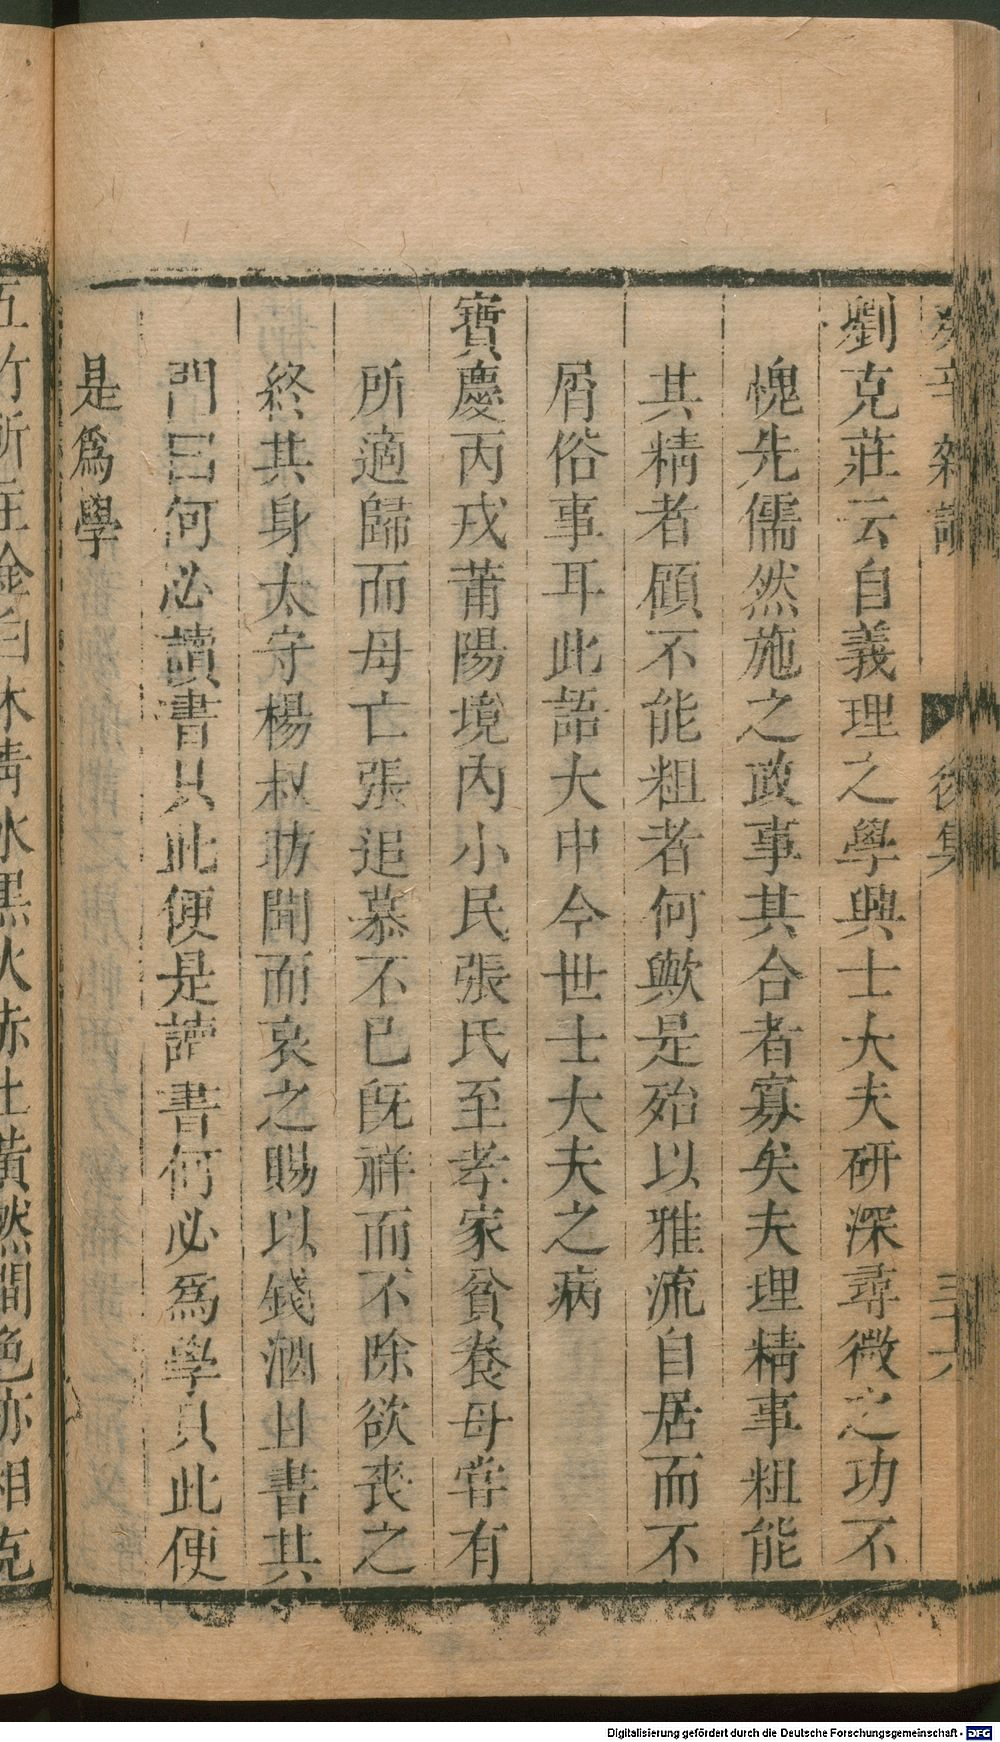 癸辛雜識 後集 三十六
劉克莊云自義理之學興士大夫研深尋微之功不
愧先儒然施之政事其合者寡矣夫理精事粗能
其精者顧不能粗者何歟是殆以雅流自居而不
屑俗事耳此語大中今世士大夫之病
寶慶丙戌莆陽境內小民張氏至孝家貧養母甞有
所適歸而母亡張追慕不已旣祥而不除欲喪之
終其身太守楊叔昉聞而哀之賜以錢酒且書其
門曰何必讀書只此便是讀書何必爲學只此便
是爲學
五竹所在金白木靑水黒火赤土黃然間色亦相克
Digitalisierung gefördert durch die Deutsche Forschungsgemeinschaft - DFG